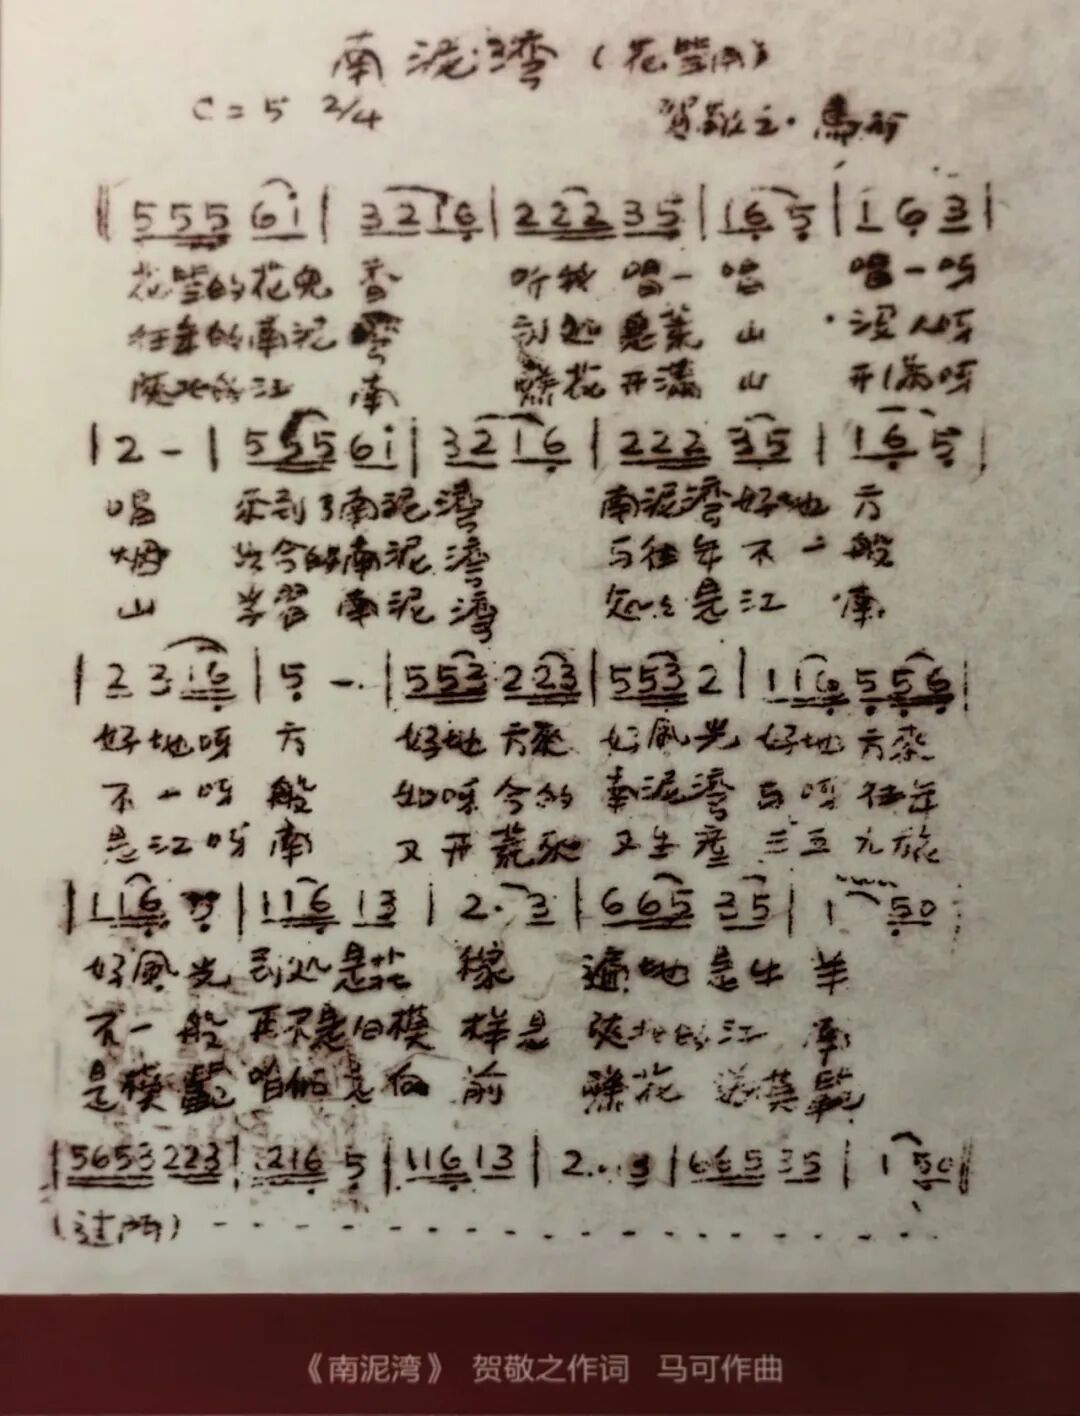 南泥湾(花篮曲)
C=5 2/4 贺敬之·馬可
555 6i | 3216 | 222 35 | 16 5 | 1 6 3 |
花篮的花兒 香 听我 唱一 唱 唱一呀
往年的南泥 湾 到处 是荒 山 没人呀
陕北的江 南 鲜花 开满 山 开满呀
| 2 - | 555 6i | 32 16 | 222 35 | 16 5 |
唱 来到了南泥 湾 南泥湾好地 方
烟 如今的南泥 湾 与往年 不一 般
山 学習 南泥 湾 处处是江 南
| 2 3 16 | 5 - | 553 223 | 553 2 | 116 556 |
好地呀 方 好地 方來 好風光 好地 方來
不一呀 般 如呀 今的 南泥湾 与呀 往年
是江呀 南 又开荒 又生産 三五九旅
| 116 5 | 116 13 | 2· 3 | 665 35 | 1 50
好風光 到处是庄 稼 遍地是牛 羊
不一般 再不是旧模 样是 陕北的江 南
是模範 咱们是向 前 鲜花 送模範
| 5653 223 | 216 5 | 116 13 | 2· 3 | 665 35 | 1 50 ‖
(过门) - - - - - - - - - - - - - - - -
《南泥湾》 贺敬之作词 马可作曲